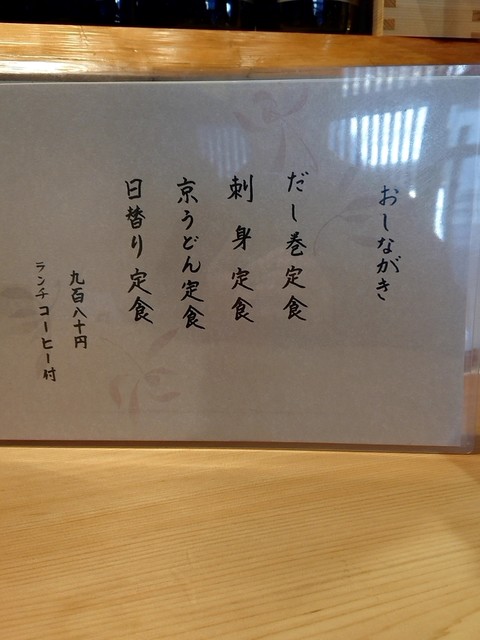 おしながき
だし巻定食
刺身定食
京うどん定食
日替り定食
九百八十円
ランチコーヒー付